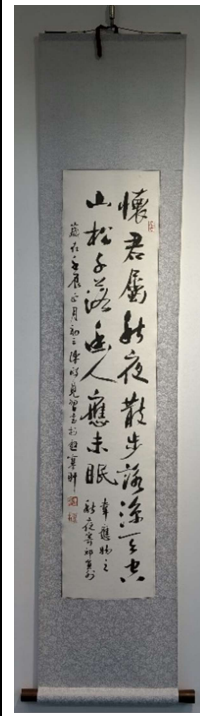 懷君屬秋夜散步詠涼天空
山松子落幽人應未眠
韋應物之
秋夜寄邱員外
歲在壬辰正月初三